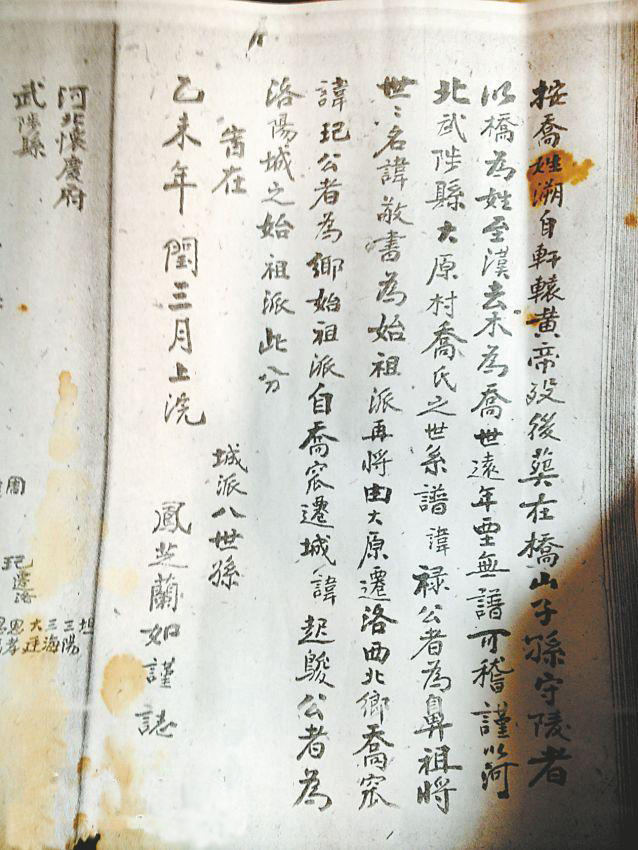 按喬姓溯自軒轅黄帝殁後葬在橋山子孫守陵者
以橋為姓至漢去木為喬世遠年堙無譜可稽謹以河
北武陟縣大原村喬氏之世系譜諱祿公者為鼻祖將
世〻名諱敬書為始祖派再將由大原遷洛西北鄉喬窊
諱玘公者為鄉始祖派自喬窊遷城諱起駿公者為
洛陽城之始祖派此分
旹在
乙未年閏三月上浣
城派八世孫
鳳芝蘭如謹誌
河北懷慶府
武陟縣